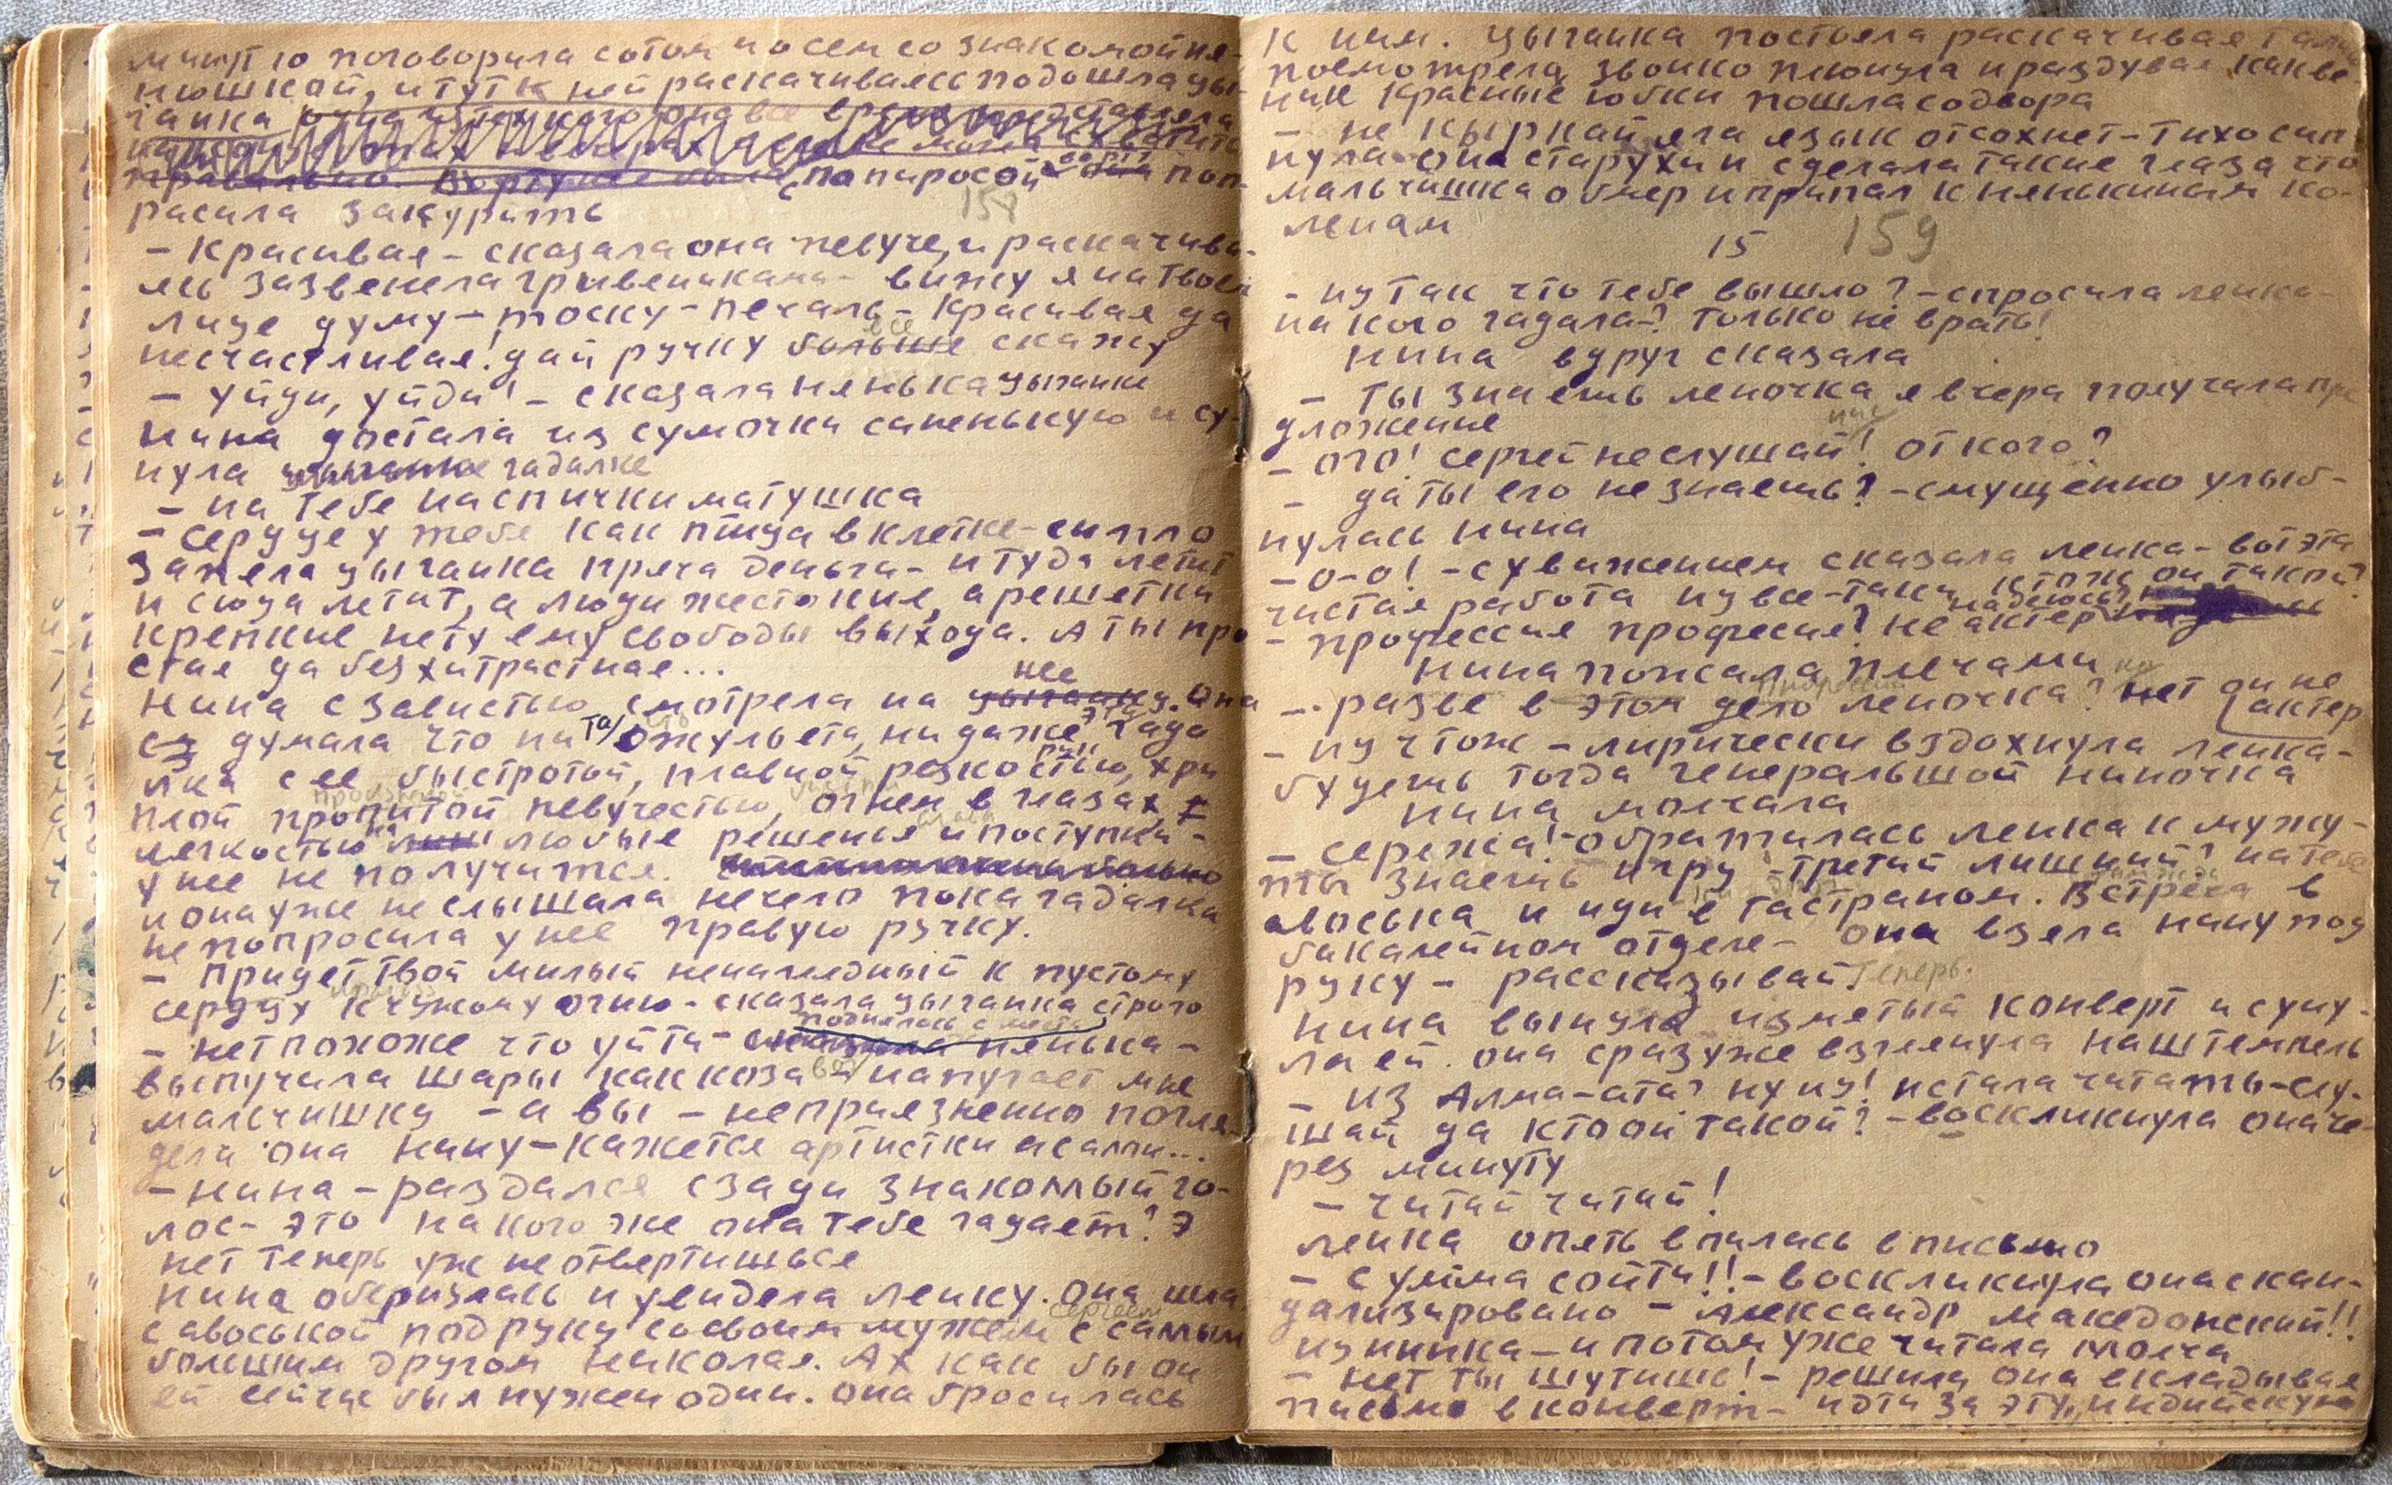 минутю поговорила с отом и о сем со знакомой ня-
нюшкой, и тут к ней раскачиваясь подошла цы-
ганка
с папиросой поп-
расила закурить
158
- красивая - сказала она певуче, и раскачива-
ясь зазвенела гривенниками - вижу я на твоем
лице думу - тоску - печаль - красивая да
несчастливая! дай ручку больше все скажу
- уйди, уйди! - сказала нянька цыганке
Нина достала из сумочки синенькую и су-
нула цыганке гадалке
- на тебе на спички матушка
- сердце у тебе как птица в клетке - сипло
запела цыганка пряча деньги - и туда летит
и сюда летит, а люди жестокие, а решетки
крепкие нету ему свободы выхода. А ты про
стая да безхитрастная...
нее
Нина с завистью смотрела на цыганку. Она
думала что ни та джульета, ни даже эта гада
лка с ее быстротой, плавной резкостью рук, хри
плой пропитой певучестью, огнем в глазах,
легкостью на любые решенья и поступки -
у нее не получится.
и она уже не слышала нечего пока гадалка
не попросила у нее правую ручку.
- Придет твой милый ненагледный к пустому
сердцу к чужому огню - сказала цыганка строго
поднялась с места
- нет похоже что уйти - сказала нянька -
выпучила шары как коза - напугает мне
мальчишку - а вы - неприязненно погля
дела она нину - кажется артистки а сами...
- Нина - раздался сзади знакомый го-
лос - это на кого же она тебе гадает? Э
нет теперь уж не отвертишься
Нина обернулась и увидела ленку. Она шла
сергеем
с авоськой под руку со своим мужем с самым
большим другом николая. Ах как бы он
ей сейчас был нужен один. она бросилась
к ним. Цыганка постояла раскачивая
посмотрела, звонко плюнула и раздувая как ве
ник красные юбки пошла со двора
- не кыркай яга язык отсохнет - тихо сип
нула она старухи и сделала такие глаза что
мальчишка обмер и припал к нянькиным ко-
ленам
15 159
- ну так что тебе вышло? - спросила ленка -
на кого гадала-? только не врать!
Нина вдруг сказала
- ты знаешь леночка я вчера получила пре
дложение
- ого! сергей не слушай! от кого?
- да ты его не знаешь? - смущённо улыб-
нулась нина
- о-о! - с уважением сказала ленка - вот эта
чистая работа ну все-таки кто ж он такой?
- профессия професия? не актер надеюсь?
Нина пожала плечами
- разве в этом дело леночка? нет он не
актер
- ну что ж - лирически вздохнула ленка -
будешь тогда генеральшой ниночка
Нина молчала
- Сережа! - обратилась ленка к мужу -
ты знаешь игру третий лишний? на тебе
авоська и иди в гастраном. Встреча в
бакалейном отделе - она взела нину под
руку - рассказывай теперь.
Нина вынула измятый конверт и суну-
ла ей. она сразу же взглянула на штемпель
- из Алма-ата? ну ну! и стала читать - слу-
шай да кто он такой? - воскликнула она че-
рез минуту
- читай читай!
ленка опять впилась в письмо
- с ума сойти!! - воскликнула она скан-
дализировано - Александр македонский!!
ну нинка - и потом уже читала молча
- нет ты шутишь! - решила она вкладывая
письмо в конверт - идти за эту „индийскую